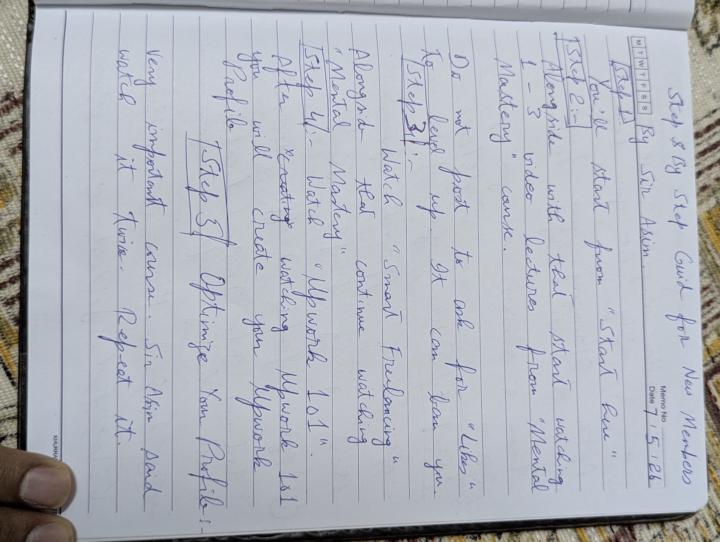 Step & By Step Guid for New Members
Memo No.
Date 7 / 5 / 26
M T W T F S S
By Sir Asim.
Step 1
You'll start from "Start here"
Step 2:-
Alongside with that start watching
1 - 3 video lectures from "Mental
Mastery" course.
Do not post to ask for "Likes"
to level up. It can ban you.
Step 3:-
Watch "Smart Freelancing"
Alongside that continue watching
"Mental Mastery"
Step 4:- Watch "Upwork 101".
After watching Upwork 101
you will create your Upwork
Profile
Step 5 Optimize Your Profile:-
Very important course. Sir Asim said
watch it twice. Repeat it.